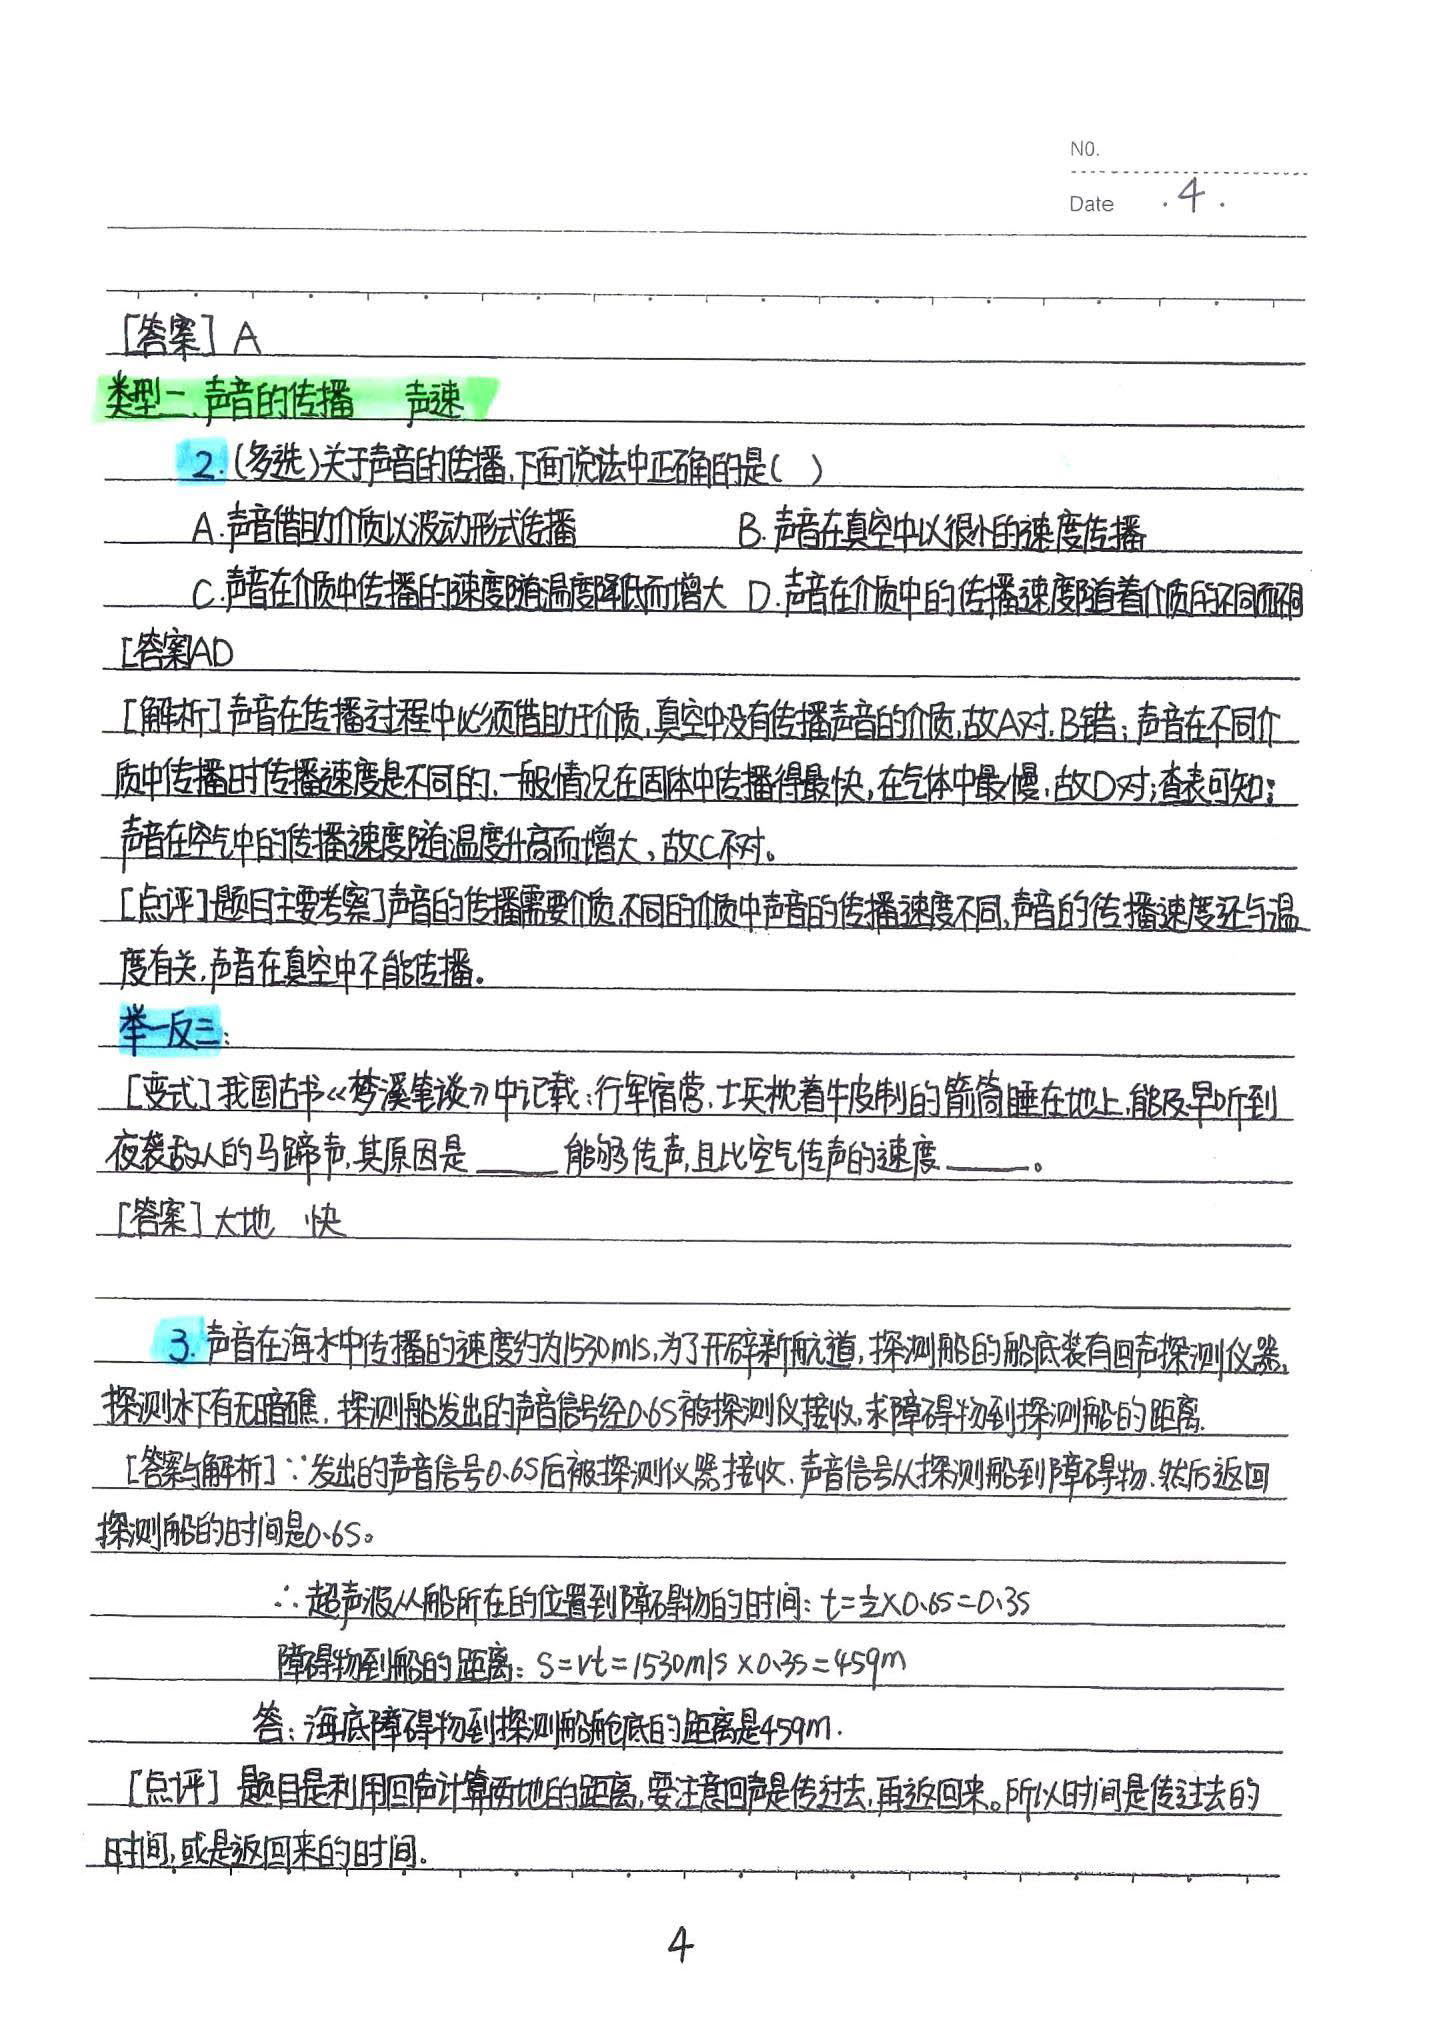 NO.
Date .4.
[答案] A
类型二、声音的传播 声速
2.(多选)关于声音的传播,下面说法中正确的是( )
A.声音借助介质以波动形式传播 B.声音在真空中以很小的速度传播
C.声音在介质中传播的速度随温度降低而增大 D.声音在介质中的传播速度随着介质的不同而不同
[答案]AD
[解析]声音在传播过程中必须借助于介质,真空中没有传播声音的介质,故A对,B错;声音在不同介
质中传播时传播速度是不同的,一般情况在固体中传播得最快,在气体中最慢,故D对;查表可知:
声音在空气中的传播速度随温度升高而增大,故C不对。
[点评]题目主要考察了声音的传播需要介质,不同的介质中声音的传播速度不同,声音的传播速度还与温
度有关,声音在真空中不能传播。
举一反三:
[变式]我国古书《梦溪笔谈》中记载:行军宿营,士兵枕着牛皮制的箭筒睡在地上,能及早听到
夜袭敌人的马蹄声,其原因是____能够传声,且比空气传声的速度____。
[答案]大地 快
3.声音在海水中传播的速度约为1530m/s,为了开辟新航道,探测船的船底装有回声探测仪器,
探测水下有无暗礁,探测船发出的声音信号经0.6s被探测仪接收,求障碍物到探测船的距离.
[答案与解析]∵发出的声音信号0.6s后被探测仪器接收,声音信号从探测船到障碍物,然后返回
探测船的时间是0.6s。
∴超声波从船所在的位置到障碍物的时间:t=½×0.6s=0.3s
障碍物到船的距离:s=vt=1530m/s×0.3s=459m
答:海底障碍物到探测船舱底的距离是459m.
[点评] 题目是利用回声计算两地的距离,要注意回声是传过去,再返回来。所以时间是传过去的
时间,或是返回来的时间.
4